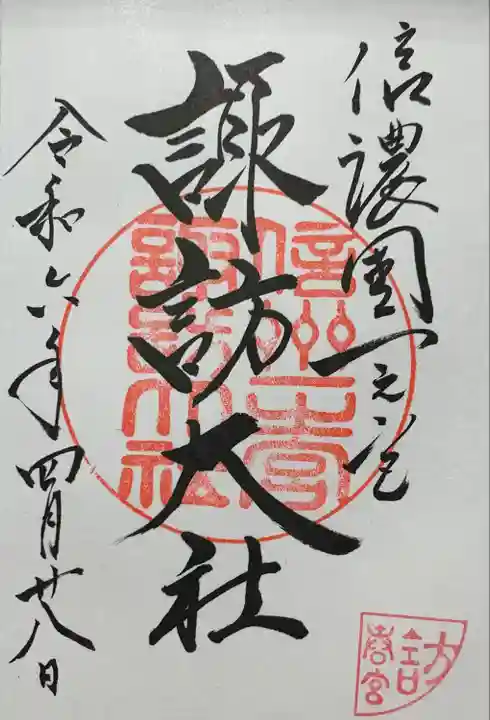 信濃國一之宮
諏訪大社
令和六年四月廿八日
信州一之宮
諏訪大社